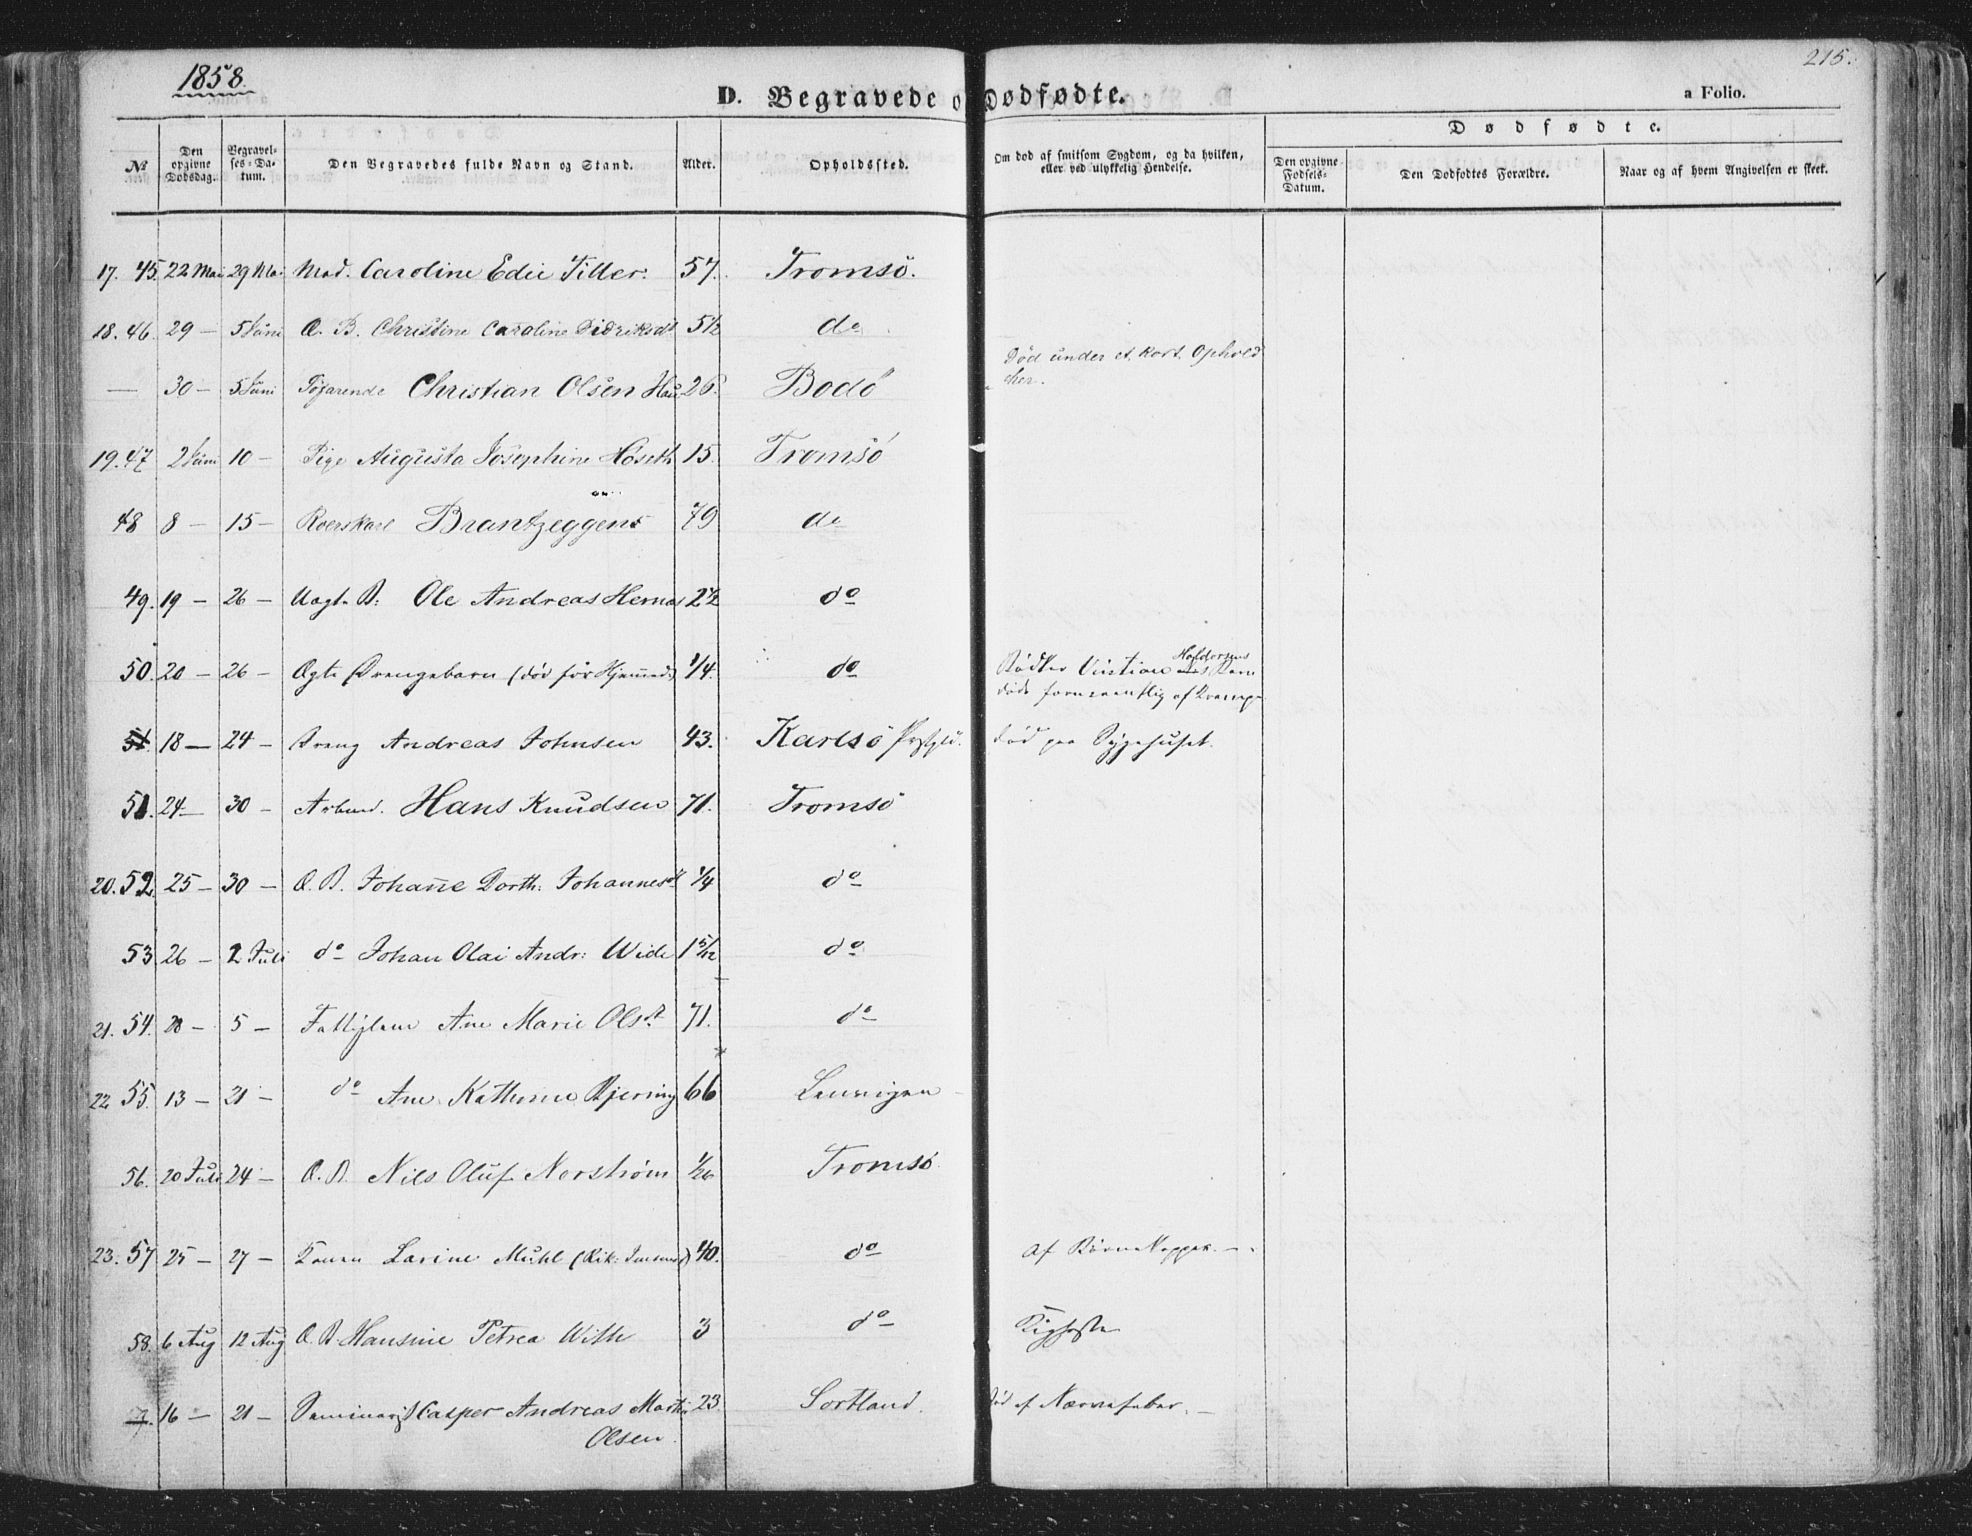 1858.
215.
D. Begravede o Dødfødte.
a Folio.
Dødfødte.
№
Den opgivne Dødsdag.
Begravelses-Datum.
Den Begravedes fulde Navn og Stand.
Alder.
Opholdssted.
Om død af smitsom Sygdom, og da hvilken, eller ved ulykkelig Hendelse.
Den opgivne Fødsels-Datum.
Den Dødfødtes Forældre.
Naar og af hvem Angivelsen er skeet.
17. 45. 22 Mai 29 Mai Mad. Caroline Edie Tiller. 57. Tromsö.
18. 46. 29 — 5 Juni Æ. B. Christine Caroline Didriksdt 5½ do
— 30 — 5 Juni Christian Olsen 26. Bodö Död under et kort Ophold
her.
19. 47 2 Juni 10 — Pige Augusta Josephine Høseth 15. Tromsö
48 8 — 15 — Brantzeggens 79 do
49. 19 — 26 — Uægt. B: Ole Andreas Hernæs do
50. 20 — 26 — Ægte Drengebarn (död för Hjemmed:) 1/4. do Bödker Haldorsens Barn
döde formentlig af Krampe
51. 18 — 24 — Dreng Andreas Johnsen 43. Karlsö Prstgld. död paa Sygehuset.
51. 24 — 30 — Arbmd. Hans Knudsen 71. Tromsö
20. 52. 25 — 30 — Æ. B. Johanne Dorth: Johannesdt 1/4 do
53. 26 — 2 Juli do Johan Olai Andr: Wide 1 5/12 do
21. 54. 28 — 5 — Fattiglem Ane Marie Olsdt 71. do
22 55. 13 — 21 — do Ane Kathrine Bjering 66
56. 20 Juli 24 — Æ. B. Nils Oluf Norström 1/26 Tromsö.
23. 57 25 — 27 — Larine Muhl 40. do af Börnekopper. —
58. 6 Aug 12 Aug Æ. B. Hansine Petrea With 3 do Kighoste
16 — 21 — Seminarist Casper Andreas Martin 23. Sortland. död af Nervefeber. —
Olsen.